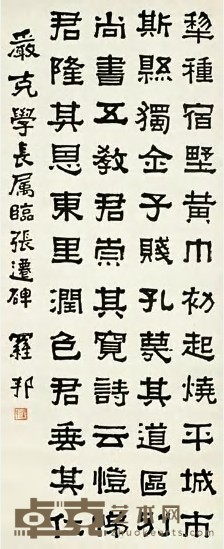 犁種宿墅黃巾初起燒平城市
斯縣獨全子賤孔蔑其道區別
尚書五教君崇其寬詩云愷悌
君隆其恩東里潤色君垂其仁
嚴克學長属臨張遷碑 羅邦